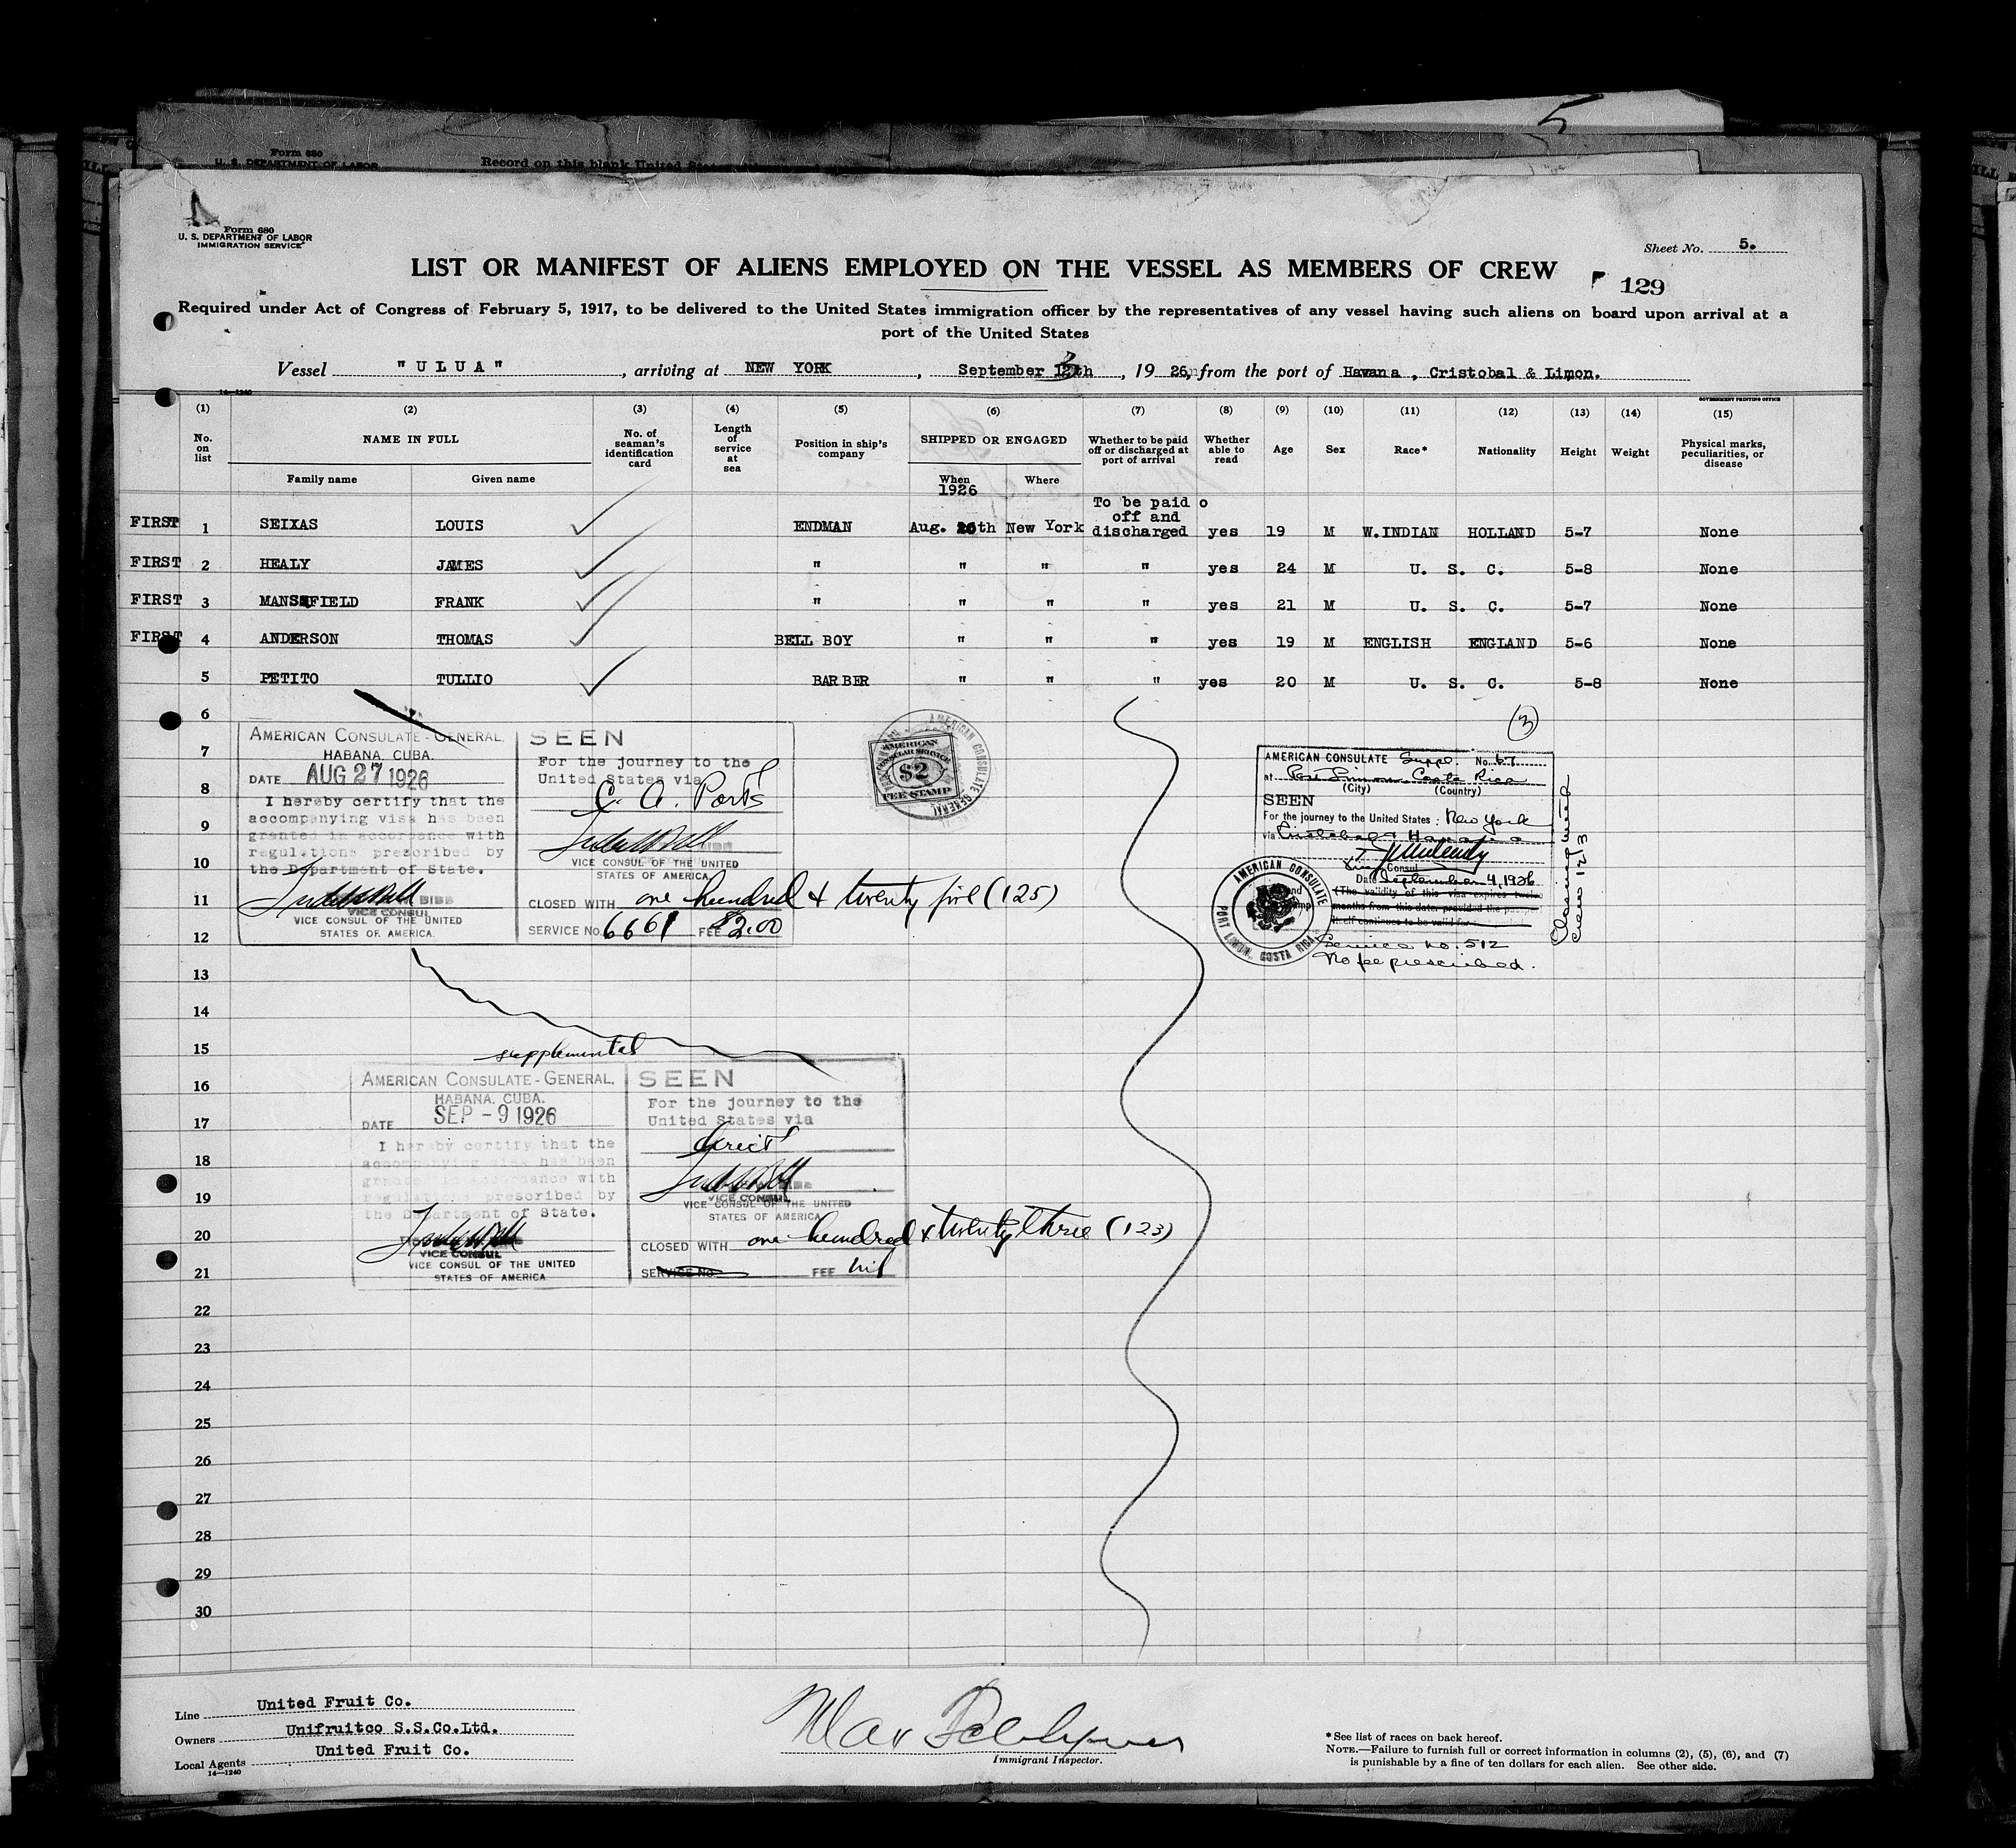 5
Form 680
U. S. DEPARTMENT OF LABOR
Record on this blank United
Form 680
U. S. DEPARTMENT OF LABOR
IMMIGRATION SERVICE
Sheet No. 5.
LIST OR MANIFEST OF ALIENS EMPLOYED ON THE VESSEL AS MEMBERS OF CREW
129
Required under Act of Congress of February 5, 1917, to be delivered to the United States immigration officer by the representatives of any vessel having such aliens on board upon arrival at a
port of the United States
Vessel "ULUA", arriving at NEW YORK, September 12th 3, 1926, from the port of Havana, Cristobal & Limon.
14-1240
GOVERNMENT PRINTING OFFICE
(1) (2) (3) (4) (5) (6) (7) (8) (9) (10) (11) (12) (13) (14) (15)
No. on list
NAME IN FULL
Family name Given name
No. of seaman's identification card
Length of service at sea
Position in ship's company
SHIPPED OR ENGAGED
When Where
1926
Whether to be paid off or discharged at port of arrival
Whether able to read
Age
Sex
Race*
Nationality
Height
Weight
Physical marks, peculiarities, or disease
To be paid o
off and
FIRST 1 SEIXAS LOUIS ENDMAN Aug. 26th New York discharged yes 19 M W.INDIAN HOLLAND 5-7 None
FIRST 2 HEALY JAMES " " " " yes 24 M U. S. C. 5-8 None
FIRST 3 MANSFIELD FRANK " " " " yes 21 M U. S. C. 5-7 None
FIRST 4 ANDERSON THOMAS BELL BOY " " " yes 19 M ENGLISH ENGLAND 5-6 None
5 PETITO TULLIO BARBER " " " yes 20 M U. S. C. 5-8 None
6
7
8
9
10
11
12
13
14
15
16
17
18
19
20
21
22
23
24
25
26
27
28
29
30
AMERICAN CONSULATE-GENERAL.
HABANA, CUBA.
DATE AUG 27 1926
I hereby certify that the
accompanying visa has been
granted in accordance with
regulations prescribed by
the Department of State.
VICE CONSUL
VICE CONSUL OF THE UNITED
STATES OF AMERICA.
SEEN
For the journey to the
United States via
C. A. Ports
VICE CONSUL OF THE UNITED
STATES OF AMERICA
CLOSED WITH one hundred & twenty five (125)
SERVICE No. 6661 FEE $2.00
AMERICAN
CONSULAR SERVICE
$2
FEE STAMP
AMERICAN CONSULATE GENERAL
(3)
AMERICAN CONSULATE Suppl. No. 67
at Port Limon Costa Rica
(City) (Country)
SEEN
For the journey to the United States: New York
via Cristobal & Havana
Vice Consul
Date September 4, 1926
(The validity of this visa expires twelve
months from this date provided the passport
itself continues to be valid for
Service No. 512
No fee prescribed.
Closing with
crew 123
AMERICAN CONSULATE
PORT LIMON, COSTA RICA
supplemental
AMERICAN CONSULATE-GENERAL.
HABANA, CUBA.
DATE SEP -9 1926
I hereby certify that the
accompanying visa has been
granted in accordance with
regulations prescribed by
the Department of State.
VICE CONSUL
VICE CONSUL OF THE UNITED
STATES OF AMERICA
SEEN
For the journey to the
United States via
direct
VICE CONSUL
VICE CONSUL OF THE UNITED
STATES OF AMERICA
CLOSED WITH one hundred & twenty three (123)
SERVICE No. FEE nil
Line United Fruit Co.
Owners Unifruitco S.S.Co.Ltd.
Local Agents United Fruit Co.
14-1240
Max
Immigrant Inspector.
*See list of races on back hereof.
NOTE.—Failure to furnish full or correct information in columns (2), (5), (6), and (7)
is punishable by a fine of ten dollars for each alien. See other side.